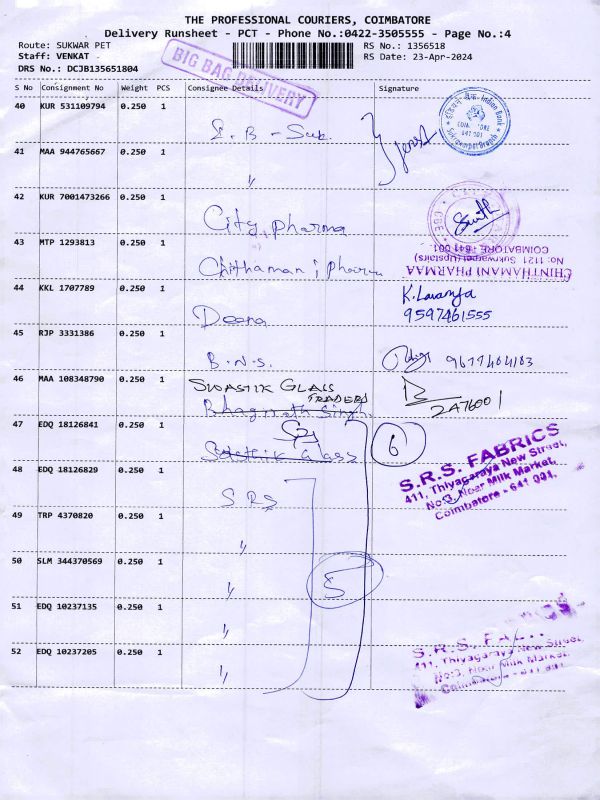 THE PROFESSIONAL COURIERS, COIMBATORE
Delivery Runsheet - PCT - Phone No.:0422-3505555 - Page No.:4
Route: SUKWAR PET
RS No.: 1356518
Staff: VENKAT
RS Date: 23-Apr-2024
DRS No.: DCJB135651804
BIG BAG DELIVERY
S No Consignment No Weight PCS Consignee Details Signature
40 KUR 531109794 0.250 1
I.B - Suk.
Indian Bank
641 001
Sukrawarpet Branch
41 MAA 944765667 0.250 1
"
42 KUR 7001473266 0.250 1
City pharma
43 MTP 1293813 0.250 1
Chithamani pharma
CHINTHAMANI PHARMAA
No: 1121 Sukrwarpet (Upstairs)
COIMBATORE - 641 001.
44 KKL 1707789 0.250 1
Deena
K. Lavanya
9597461555
45 RJP 3331386 0.250 1
B.N.S.
46 MAA 108348790 0.250 1
SWASTIK GLASS
TRADERS
Bhagirath Singh
2A76001
47 EDQ 18126841 0.250 1
Glass
6
S.R.S. FABRICS
411, Thiyagaraya New Street,
No:3, Near Milk Market,
Coimbatore - 641 001.
48 EDQ 18126829 0.250 1
SRS
49 TRP 4370820 0.250 1
"
50 SLM 344370569 0.250 1
"
5
51 EDQ 10237135 0.250 1
"
52 EDQ 10237205 0.250 1
"
S.R.S. FA
411, Thiyagaraya New Street,
No:3, Near Milk Market,
Coimbatore - 641 001.